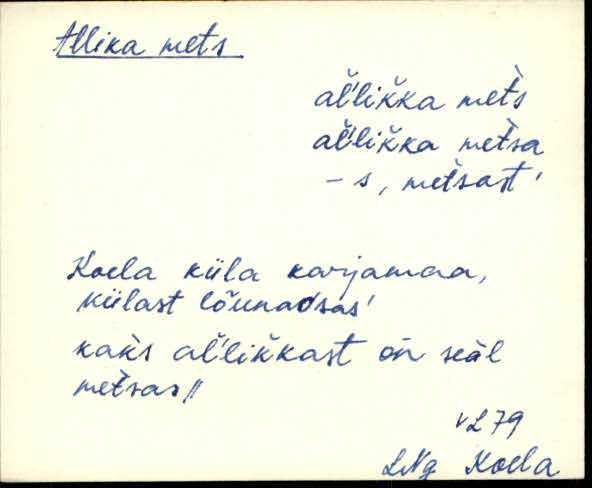 Allika mets
al̆'likka mets̀
al̆'likka mets̀a
– s, mets̀ast'
Koela küla karjamaa,
külast lõunaosas'
kaks̀ al̆'likkast on seäl
mets̀as //
VL 79
LNg Koela